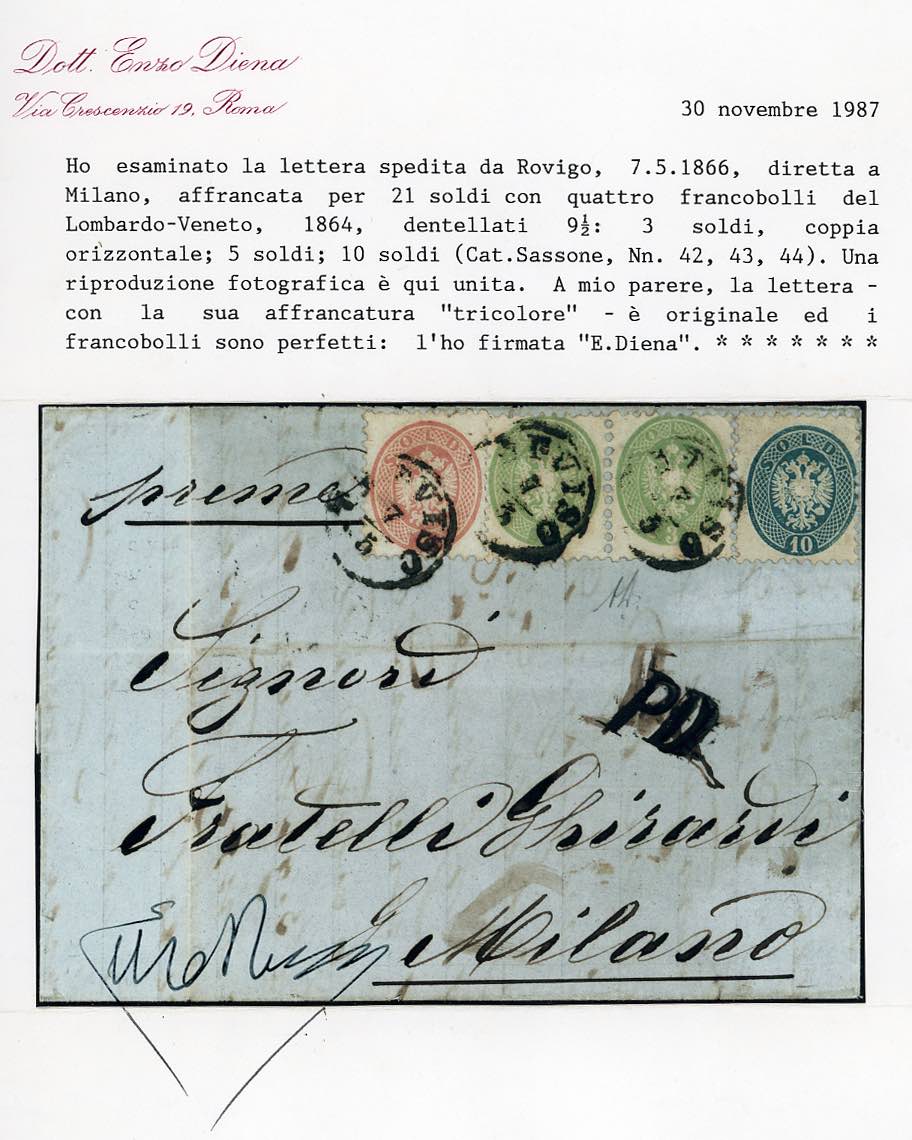 Dott. Enzo Diena
Via Crescenzio 19, Roma
30 novembre 1987
Ho esaminato la lettera spedita da Rovigo, 7.5.1866, diretta a
Milano, affrancata per 21 soldi con quattro francobolli del
Lombardo-Veneto, 1864, dentellati 9½: 3 soldi, coppia
orizzontale; 5 soldi; 10 soldi (Cat.Sassone, Nn. 42, 43, 44). Una
riproduzione fotografica è qui unita. A mio parere, la lettera -
con la sua affrancatura "tricolore" - è originale ed i
francobolli sono perfetti: l'ho firmata "E.Diena". * * * * * * *
SOLDI
SOLDI
SOLDI
SOLDI 10
7/5
7/5
7/5
Signori
PD
Fratelli Ghirardi
Milano